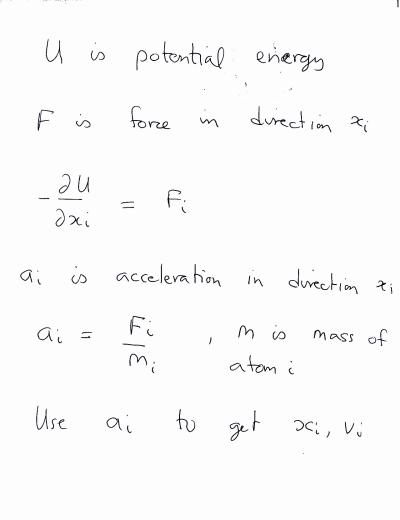 U is potential energy
F is force in direction xi
-∂U/∂xi = Fi
ai is acceleration in direction xi
ai = Fi/mi , m is mass of
atom i
Use ai to get xi, vi